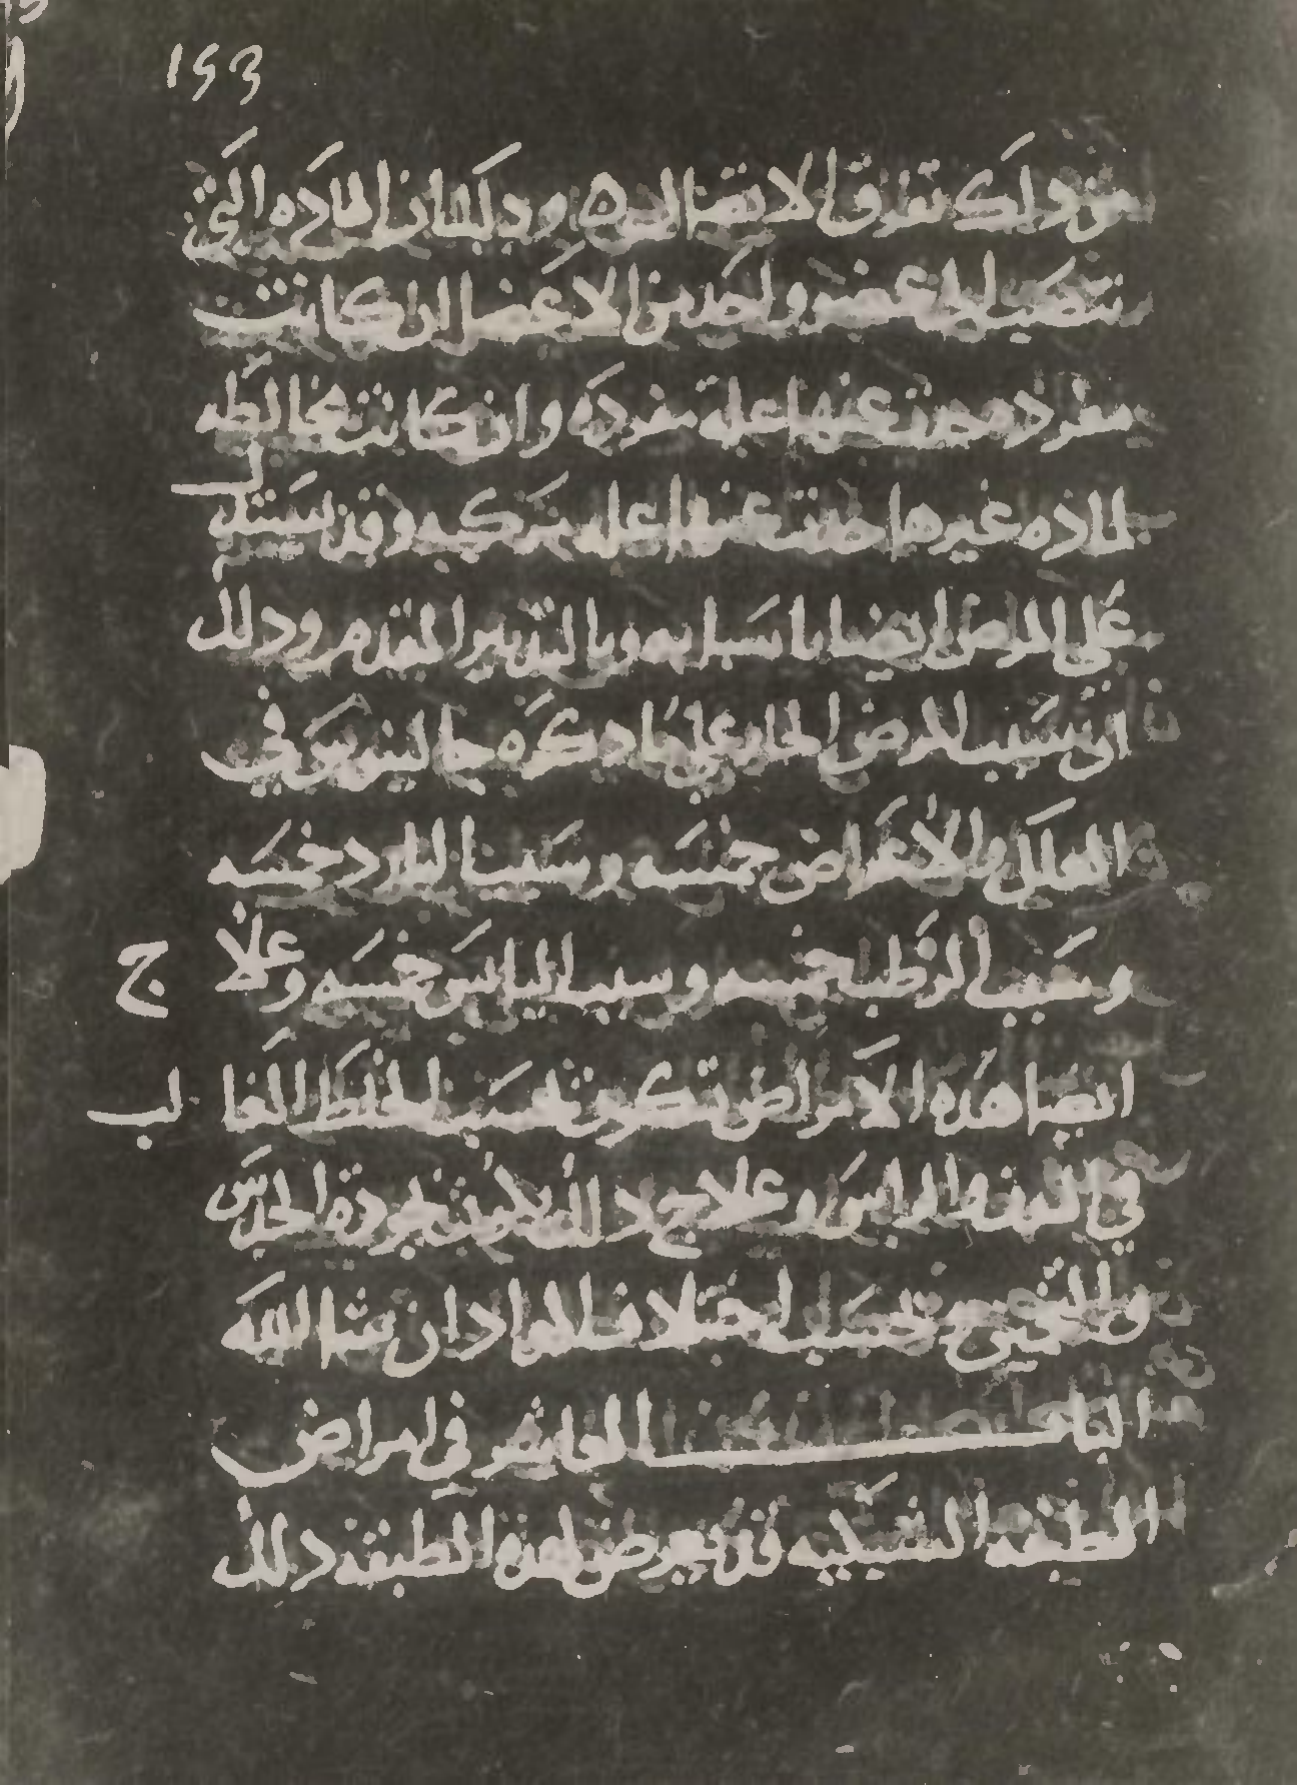 153
من ذلك تفرق الاتصال ه وذلك ان الماده التي
تنصب الى عضو واحد من الاعضا ان كانت
مفرده حدث عنها علة مفردة وان كانت مخالطه
لماده غيرها حدثت عنها عله مركبه وقد يستدل
على المرض ايضا باسبابه وبالتدبير المتقدم وذلك
ان سبب المرض الحار على ما ذكره جالينوس في
العلل والاعراض خمسه وسببا البارد خمسه
وسببا الرطب خمسه وسببا اليابس خمسه وعلا
ج
ايضا هذه الامراض تكون بحسب الخلط الغا
لب
في البدن والراس وعلاج ذلك يكون بجودة الحدس
والتخمين بحسب اختلاف المواد ان شا الله
الباب العاشر في امراض
الطبقه الشبكيه قد يعرض لهذه الطبقه ذلك